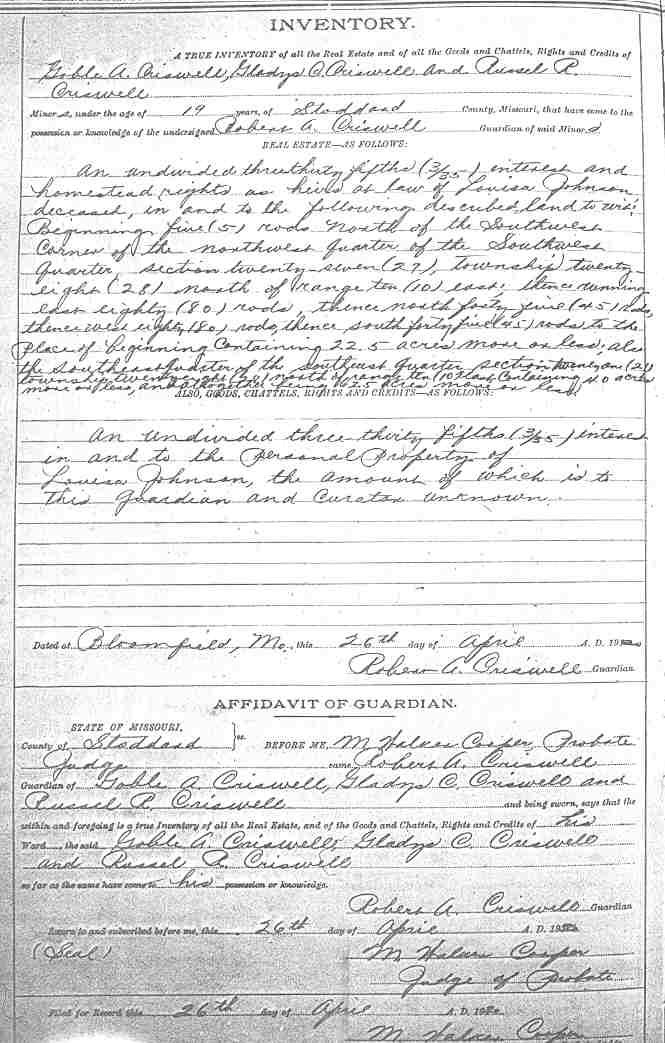 INVENTORY.
A TRUE INVENTORY of all the Real Estate and of all the Goods and Chattels, Rights and Credits of
Goble A. Criswell, Gladys C. Criswell and Russel R.
Criswell
Minors, under the age of 19 years, of Stoddard County, Missouri, that have come to the
possession or knowledge of the undersigned Robert A. Criswell Guardian of said Minors
REAL ESTATE—AS FOLLOWS:
An undivided threethirty fifths (3/35) interest and
homestead rights as heirs at law of Louisa Johnson
deceased, in and to the following described land to wit:
Beginning five (5) rods North of the Southwest
Corner of the northwest Quarter of the Southwest
Quarter, section twenty-seven (27), township twenty-
eight (28) north of range ten (10) east; thence running
east eighty (80) rods, thence north forty five (45) rods,
thence west eighty (80) rods, thence south forty five (45) rods to the
Place of beginning Containing 22.5 acres more or less, also
the southeast quarter of the southeast quarter section twenty one (21)
township twenty eight north of range ten (10) east Containing 40 acres
more or less, and altogether being 62.5 acres more or less
ALSO, GOODS, CHATTELS, RIGHTS AND CREDITS—AS FOLLOWS:
An undivided three thirty fifths (3/35) interest
in and to the Personal Property of
Louisa Johnson, the amount of which is to
this Guardian and Curator unknown.
Dated at Bloomfield, Mo., this 26th day of April A. D. 19
Robert A. Criswell Guardian
AFFIDAVIT OF GUARDIAN.
STATE OF MISSOURI,
County of Stoddard ss. BEFORE ME, M Cooper, Probate
Judge came Robert A. Criswell
Guardian of Goble A. Criswell, Gladys C. Criswell and
Russel R. Criswell and being sworn, says that the
within and foregoing is a true Inventory of all the Real Estate, and of the Goods and Chattels, Rights and Credits of his
Ward, the said Goble A. Criswell, Gladys C. Criswell
and Russel R. Criswell
so far as the same have come to his possession or knowledge.
Robert A. Criswell Guardian
Sworn to and subscribed before me, this 26th day of April A. D. 19
(Seal) M Cooper
Judge of Probate
Filed for Record this 26th day of April A. D. 19
M Cooper